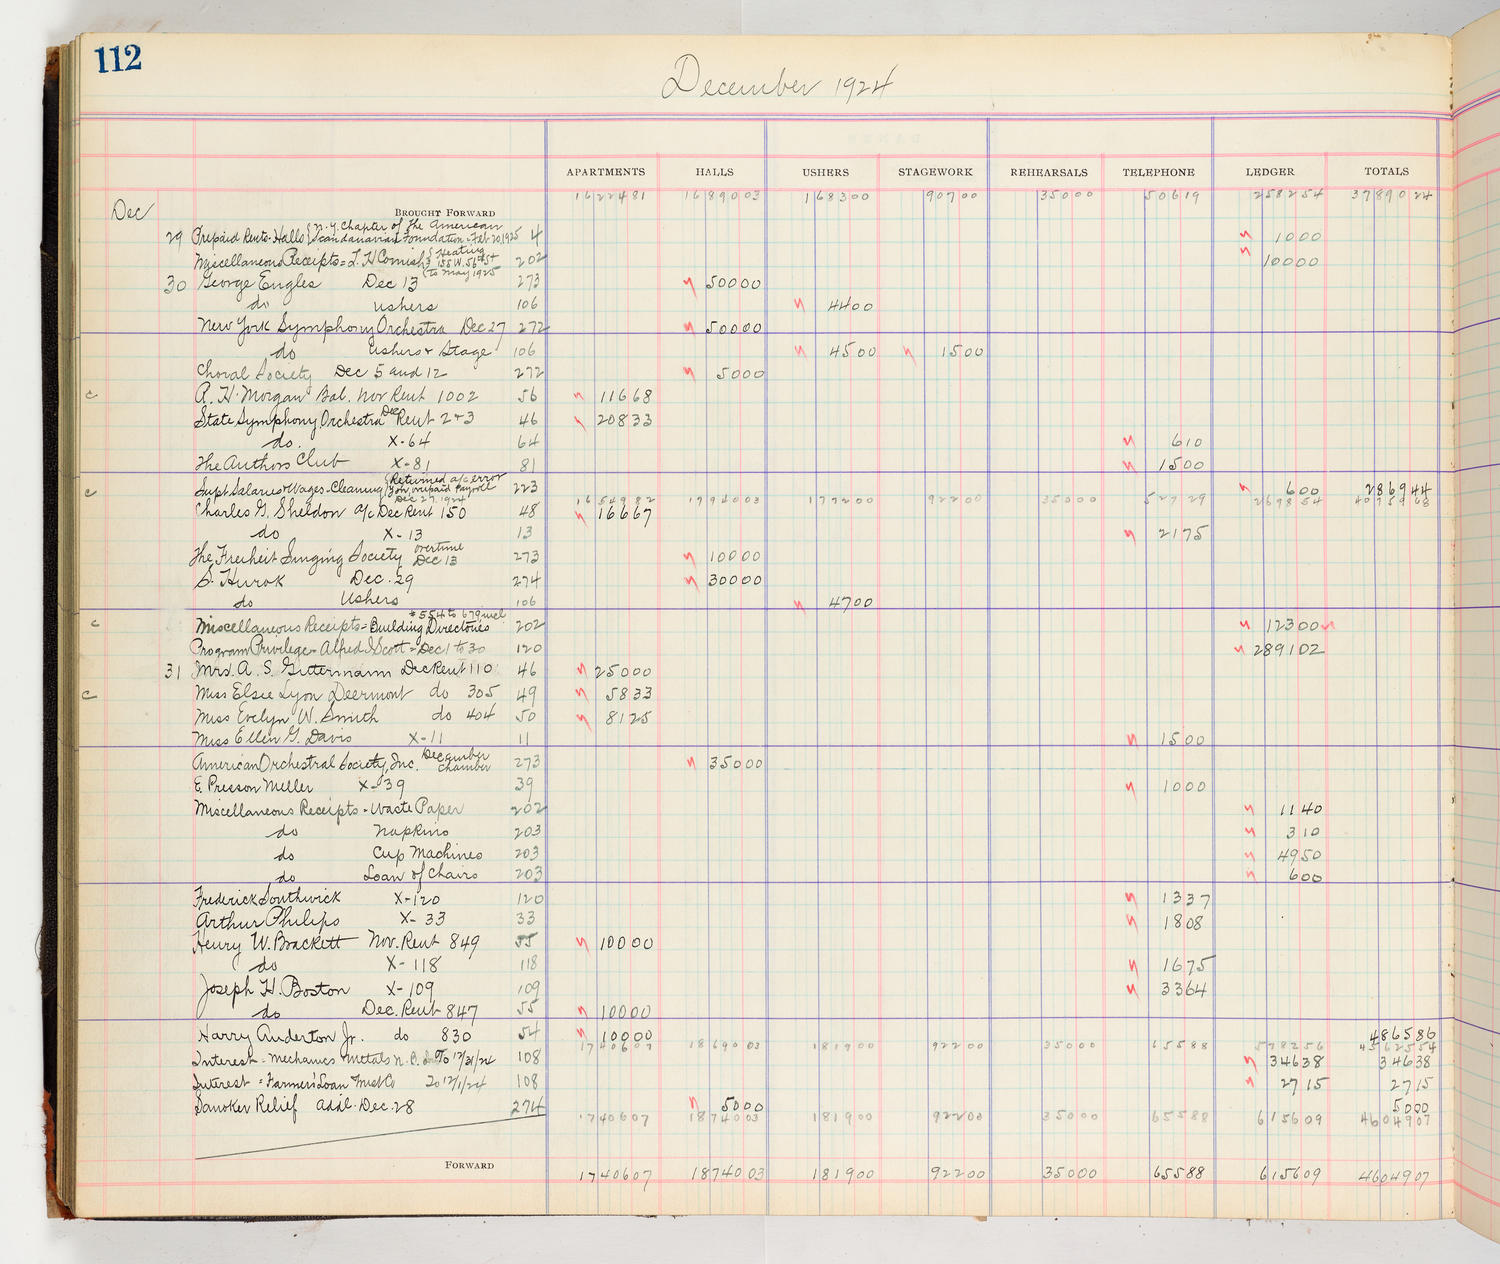 112
December 1924
APARTMENTS HALLS USHERS STAGEWORK REHEARSALS TELEPHONE LEDGER TOTALS
1622481 1689003 168300 90700 35000 50619 258254 3789024
Dec BROUGHT FORWARD
29 Prepaid Rents-Halls { N.Y. Chapter of the American Scandanavian Foundation-Feb 20, 1925 4 1000
Miscellaneous Receipts = L. H. Cornish { Heating 155 W. 56th St to May 1925 202 10000
30 George Engles Dec 13 273 50000
do ushers 106 4400
New York Symphony Orchestra Dec 27 272 50000
do ushers & Stage 106 4500 1500
Choral Society Dec 5 and 12 272 5000
c A. H. Morgan Bal. Nov Rent 1002 56 11668
State Symphony Orchestra Dec Rent 2+3 46 20833
do. X-64 64 610
The Authors Club X-81 81 1500
c Supt Salaries & Wages-Cleaning { Returned a/c error on overpaid Payroll Dec 27, 1924 223 600 286944
1654982 1794003 177200 92200 35000 52729 269854 4075968
Charles G. Sheldon a/c Dec Rent 150 48 16667
do X-13 13 2175
The Freiheit Singing Society overtime Dec 13 273 10000
S. Hurok Dec. 29 274 30000
do Ushers 106 4700
c Miscellaneous Receipts = Building Directories #554 to 679 incl 202 12300
Program Privilege = Alfred Scott = Dec 1 to 30 120 289102
31 Mrs. A. S. Gittermann Dec Rent 110 46 25000
c Miss Elsie Lyon Deermont do 305 49 5833
Miss Evelyn W. Smith do 404 50 8125
Miss Ellen G. Davis X-11 11 1500
American Orchestral Society, Inc. December chamber 273 35000
E. Presson Miller X-39 39 1000
Miscellaneous Receipts - Waste Paper 202 1140
do Napkins 203 310
do Cup Machines 203 4950
do Loan of Chairs 203 600
Frederick Southwick X-120 120 1337
Arthur Philips X-33 33 1808
Henry W. Brackett Nov. Rent 849 55 10000
do X-118 118 1675
Joseph H. Boston X-109 109 3364
do Dec. Rent 847 55 10000
Harry Anderton Jr. do 830 54 10000 486586
1740607 1869003 181900 92200 35000 65588 578256 4562554
Interest = Mechanics & Metals N. B. To 12/31/24 108 34638 34638
Interest = Farmers Loan Trust Co To 12/1/24 108 2715 2715
Smoker Relief Addl. Dec. 28 274 5000 5000
1740607 1874003 181900 92200 35000 65588 615609 4604907
FORWARD 1740607 1874003 181900 92200 35000 65588 615609 4604907